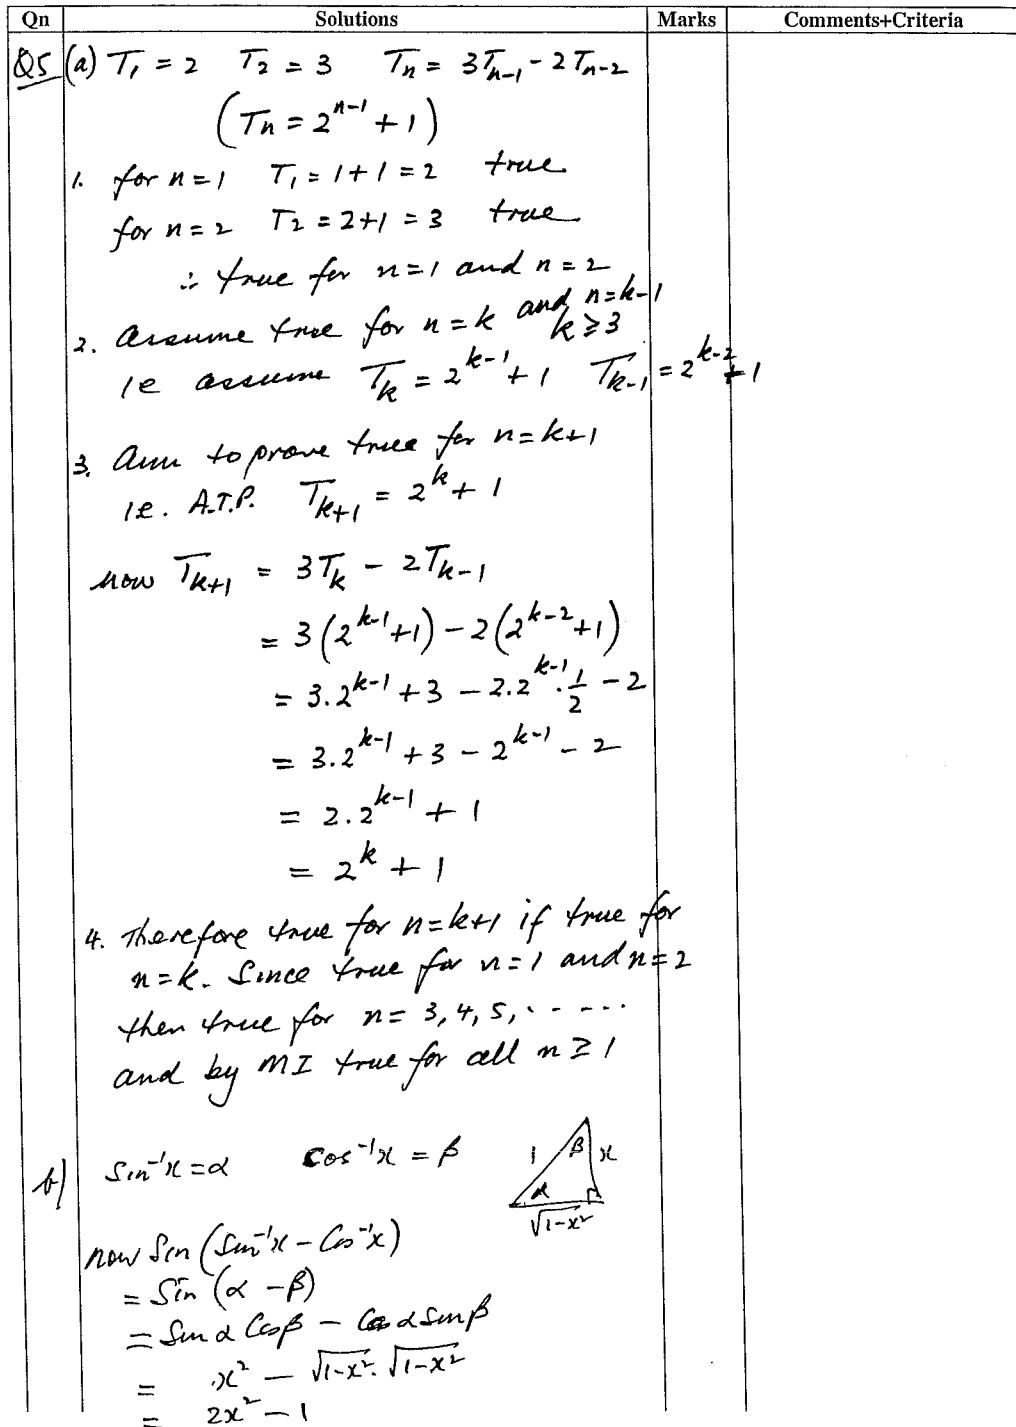 Qn Solutions Marks Comments+Criteria
Q5 (a) T₁ = 2 T₂ = 3 Tₙ = 3Tₙ₋₁ - 2Tₙ₋₂
(Tₙ = 2ⁿ⁻¹ + 1)
1. for n=1 T₁ = 1+1 = 2 true
for n=2 T₂ = 2+1 = 3 true
∴ true for n=1 and n=2
2. Assume true for n=k and n=k-1 k≥3
ie assume Tₖ = 2ᵏ⁻¹ + 1 Tₖ₋₁ = 2ᵏ⁻² + 1
3. Aim to prove true for n=k+1
ie. A.T.P. Tₖ₊₁ = 2ᵏ + 1
now Tₖ₊₁ = 3Tₖ - 2Tₖ₋₁
= 3(2ᵏ⁻¹+1) - 2(2ᵏ⁻²+1)
= 3.2ᵏ⁻¹ + 3 - 2.2ᵏ⁻¹.1/2 - 2
= 3.2ᵏ⁻¹ + 3 - 2ᵏ⁻¹ - 2
= 2.2ᵏ⁻¹ + 1
= 2ᵏ + 1
4. Therefore true for n=k+1 if true for
n=k. Since true for n=1 and n=2
then true for n= 3, 4, 5, ......
and by MI true for all n≥1
b) Sin⁻¹x = α Cos⁻¹x = β 1 β x α √1-x²
now Sin(Sin⁻¹x - Cos⁻¹x)
= Sin(α - β)
= Sin α Cos β - Cos α Sin β
= x² - √1-x². √1-x²
= 2x² - 1